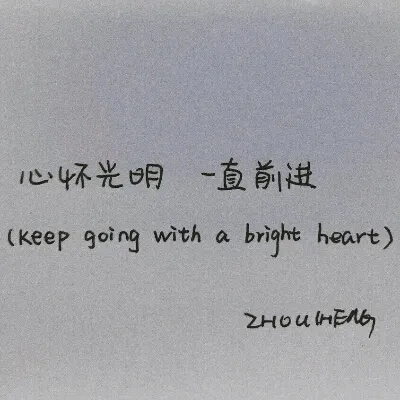 心怀光明 一直前进
(keep going with a bright heart)
ZHOUCHENG